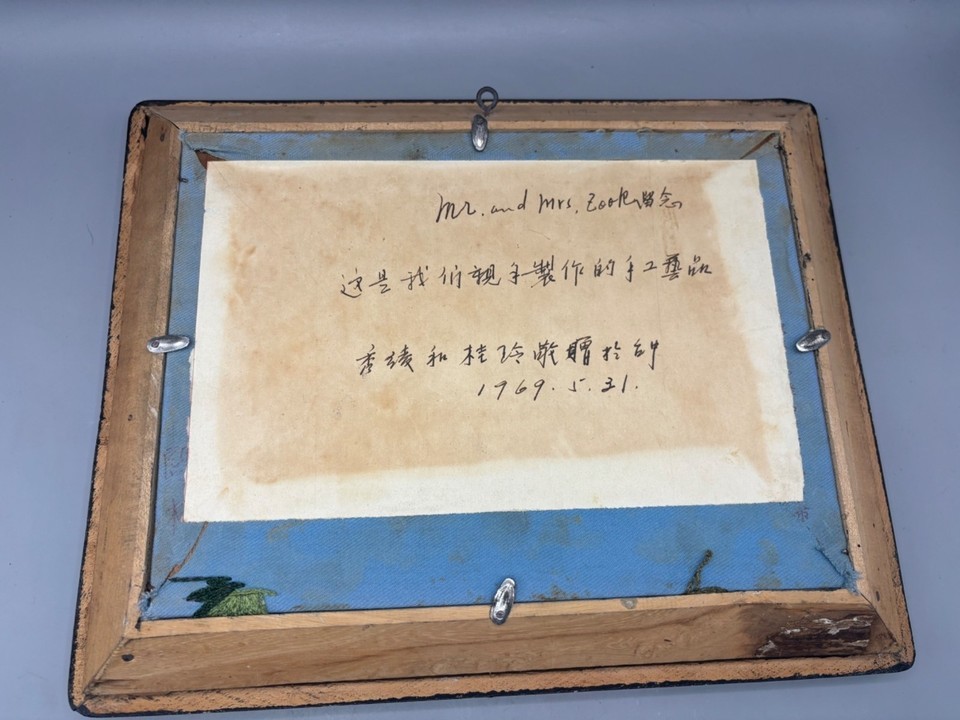 Mr. and Mrs. Zook留念
这是我们親手製作的手工藝品
秀綾和桂玲敬贈於
1969.5.31.